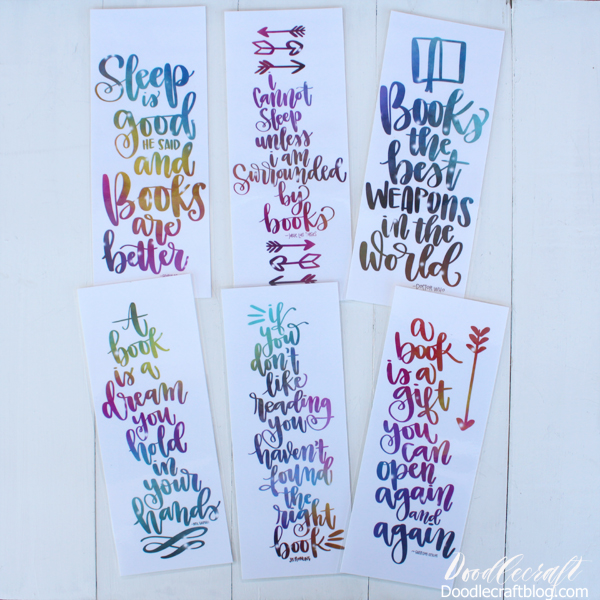 Sleep
is
good
HE SAID
and
Books
are
better
i
cannot
sleep
unless
i am
surrounded
by
books
Books
the
best
WEAPONS
in the
World
A
book
is a
dream
you
hold
in
your
hands
if
you
don't
like
reading
you
haven't
found
the
right
book
a
book
is a
gift
you
can
open
again
and
again
Doodlecraft
Doodlecraftblog.com